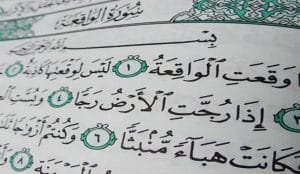 سُورَةُ الْوَاقِعَةِ
بِسْ
ا وَقَعَتِ ٱلْوَاقِعَةُ ١ لَيْسَ لِوَقْعَتِهَا كَاذِبَةٌ ٢
٣ إِذَا رُجَّتِ ٱلْأَرْضُ رَجًّا ٤ وَبُسَّتِ
كَانَتْ هَبَآءً مُّنۢبَثًّا ٦ وَكُنتُمْ أَزْوَٰجًا
٨